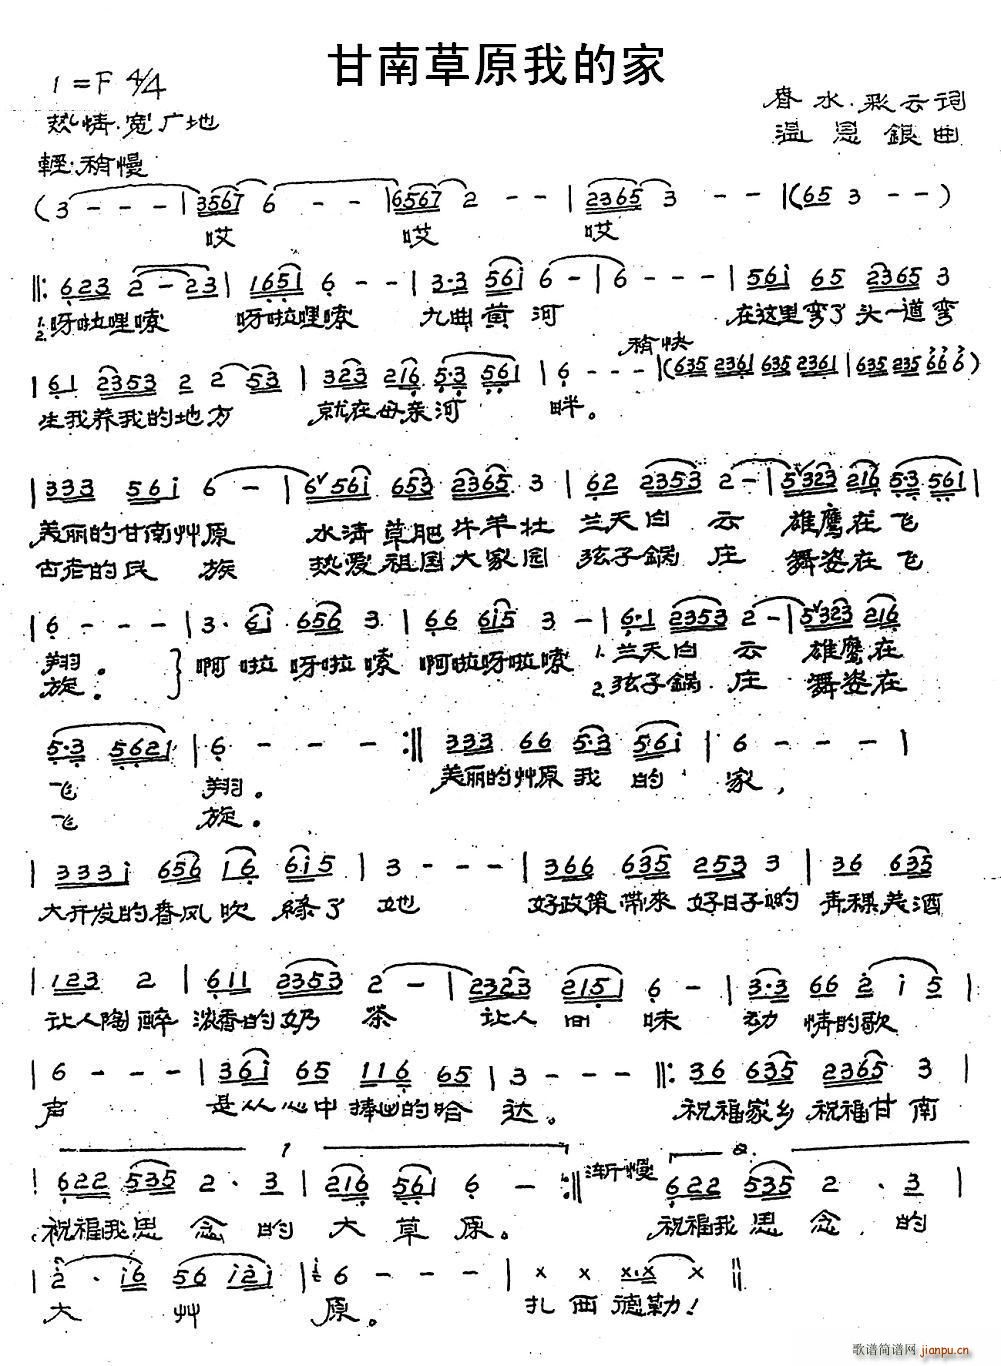 甘南草原我的家
1=F 4/4
春水·彩云词
热情·宽广地
温恩銀曲
輕·稍慢
(3 - - - | 3567 6 - - | 6567 2 - - | 2365 3 - - | (65 3 - - )
哎 哎 哎
‖: 623 2 - 23 | 165i 6 - - | 3·3 56i 6 - | 6 - - - | 56i 65 2365 3
1.2. 呀啦哩嗦 呀啦哩嗦 九曲黄河 在这里弯了头一道弯
稍快
| 61 2353 2 2 53 | 323 216 5·3 561 | 6 - - - | (635 2361 635 2361 | 635 235 66 6 )
生我养我的地方 就在母亲河 畔。
| 333 56i 6 - | 6 56i 653 2365 3 | 62 2353 2 - | 5323 216 5·3 561 |
美丽的甘南艸原 水清草肥牛羊壮 兰天白云 雄鹰在飞
古老的民族 热爱祖国大家园 弦子锅庄 舞姿在飞
| 6 - - - | 3· 6i 656 3 | 66 6i5 3 - | 6·1 2353 2 - | 5323 216
翔。 啊啦呀啦嗦 啊啦呀啦嗦 1.兰天白云 雄鹰在
旋。 2.弦子锅庄 舞姿在
5·3 5621 | 6 - - - :‖ 333 66 5·3 56i | 6 - - - |
飞 翔。 美丽的艸原我的家,
飞 旋。
| 333i 656 16 6i5 | 3 - - - | 366 635 253 3 | 36 635
大开发的春风吹绿了她 好政策带來好日子哟 青稞美酒
123 2 | 611 2353 2 - | 2323 2151 6 - | 3·3 66 2 i 5 |
让人陶醉 浓香的奶茶 让人回味 动情的歌
| 6 - - - | 36i 65 116 65 | 3 - - - ‖: 36 635 2365 3 |
声 是从心中捧出的哈达。 祝福家乡祝福甘南
1 渐慢 2.
| 622 535 2 · 3 | 216 561 6 - :‖ 622 535 2 · 3 |
祝福我思念的大草原。 祝福我思念的
| 2 · i6 56 i2i | 6 - - - | x x x·x x ‖
大艸原。 扎西德勒!
歌谱简谱网 jianpu.cn